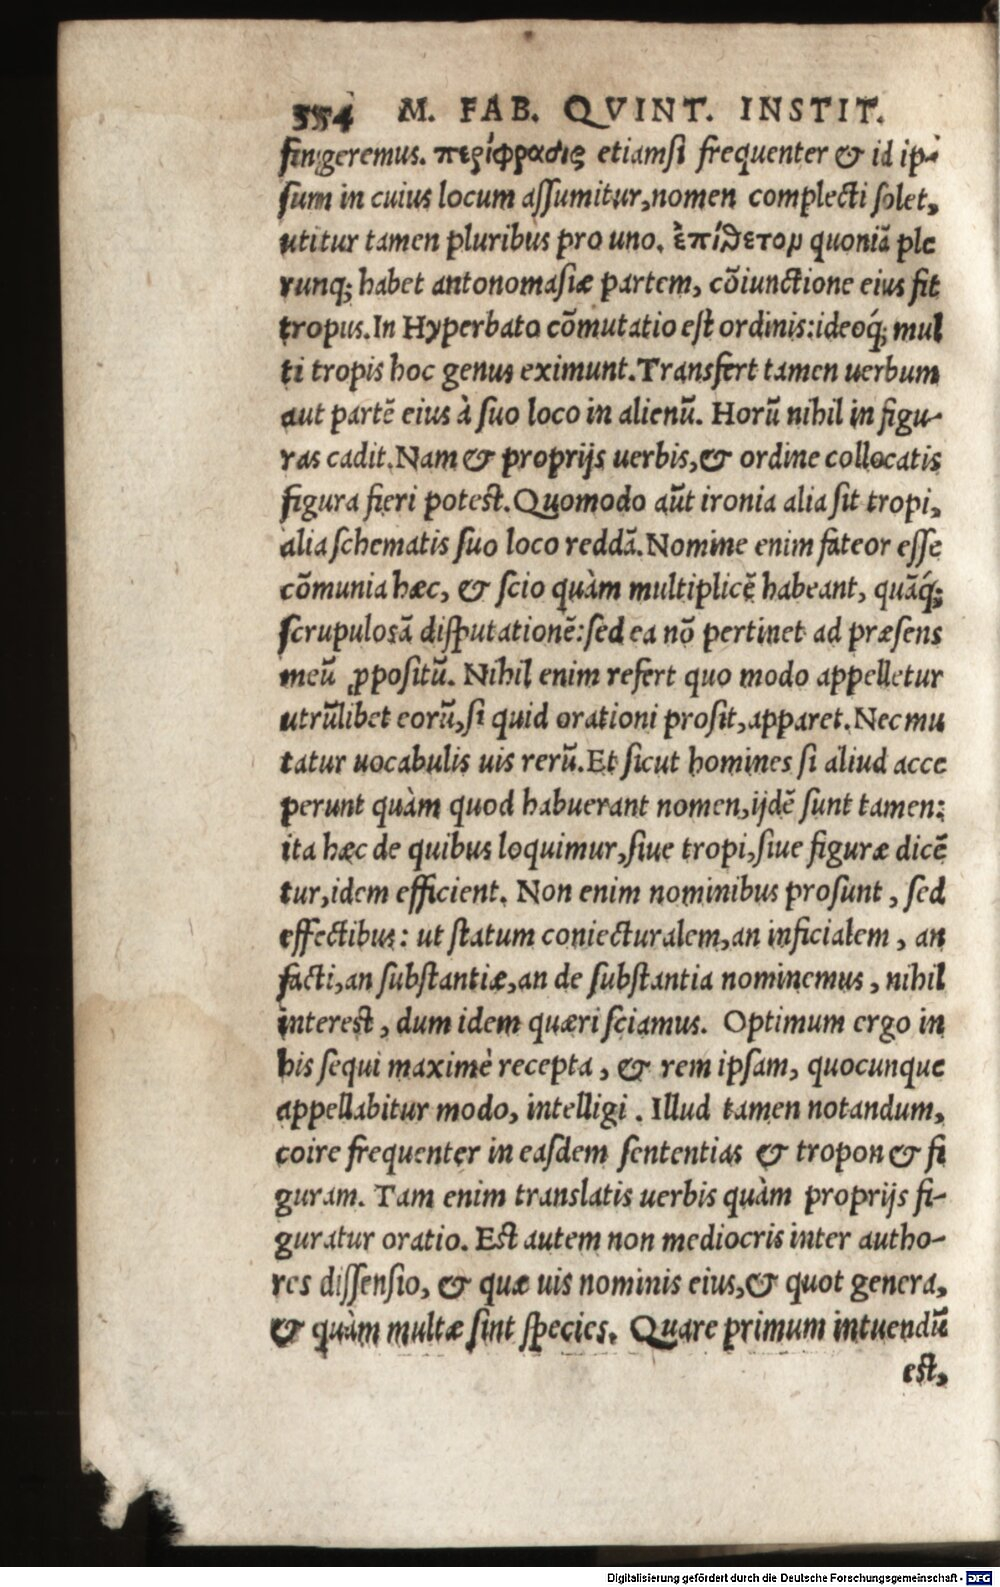 554 M. FAB. QVINT. INSTIT.
fingeremus. περίφρασις etiamsi frequenter & id ip-
sum in cuius locum assumitur, nomen complecti solet,
utitur tamen pluribus pro uno. ἐπίθετον quoniã ple
runq; habet antonomasiæ partem, cõiunctione eius fit
tropus. In Hyperbato cõmutatio est ordinis: ideoq́; mul
ti tropis hoc genus eximunt. Transfert tamen uerbum
aut partẽ eius à suo loco in alienũ. Horũ nihil in figu-
ras cadit. Nam & proprijs uerbis, & ordine collocatis
figura fieri potest. Quomodo aũt ironia alia sit tropi,
alia schematis suo loco reddã. Nomine enim fateor esse
cõmunia hæc, & scio quàm multiplicẽ habeant, quãq́;
scrupulosã disputationẽ: sed ea nõ pertinet ad præsens
meũ ꝓpositũ. Nihil enim refert quo modo appelletur
utrũlibet eorũ, si quid orationi prosit, apparet. Nec mu
tatur uocabulis uis rerũ. Et sicut homines si aliud acce
perunt quàm quod habuerant nomen, ijdẽ sunt tamen:
ita hæc de quibus loquimur, siue tropi, siue figuræ dicẽ
tur, idem efficient. Non enim nominibus prosunt, sed
effectibus: ut statum coniecturalem, an inficialem, an
facti, an substantiæ, an de substantia nominemus, nihil
interest, dum idem quæri sciamus. Optimum ergo in
his sequi maximè recepta, & rem ipsam, quocunque
appellabitur modo, intelligi. Illud tamen notandum,
coire frequenter in easdem sententias & tropon & fi
guram. Tam enim translatis uerbis quàm proprijs fi-
guratur oratio. Est autem non mediocris inter autho-
res dissensio, & quæ uis nominis eius, & quot genera,
& quàm multæ sint species. Quare primum intuendũ
est,
Digitalisierung gefördert durch die Deutsche Forschungsgemeinschaft - DFG